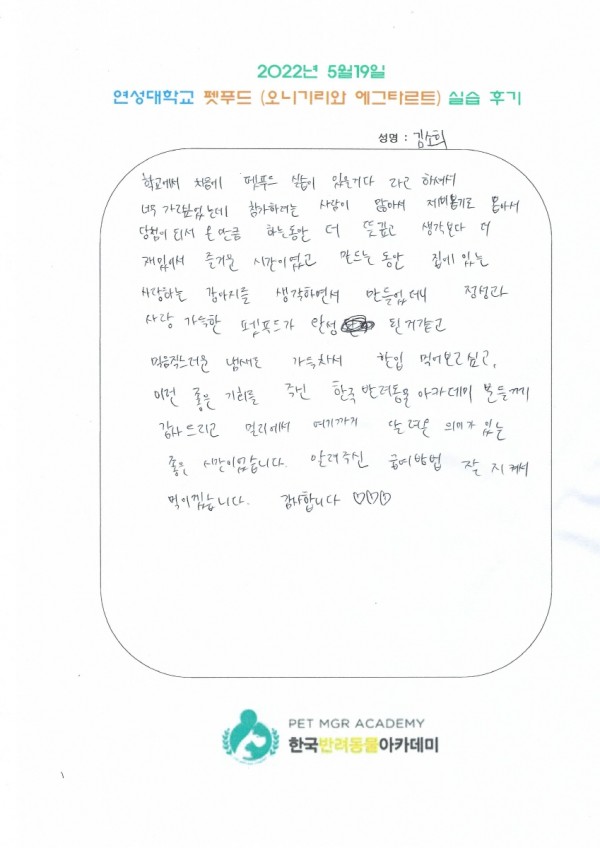 2022년 5월19일
연성대학교 펫푸드 (오니기리와 에그타르트) 실습 후기
성명 : 김소희
학교에서 처음에 펫푸드 실습이 있을거다 라고 하셔서
너무 가고싶었는데 참가하려는 사람이 많아서 제비뽑기로 뽑아서
당첨이 되서 온 만큼 하는동안 더 뜻깊고 생각보다 더
재밌어서 즐거운 시간이였고 만드는 동안 집에 있는
사랑하는 강아지를 생각하면서 만들었더니 정성과
사랑 가득한 펫푸드가 완성 된거같고
먹음직스러운 냄새도 가득차서 한입 먹어보고싶고,
이런 좋은 기회를 주신 한국반려동물아카데미 분들께
감사드리고 멀리에서 여기까지 달려온 의미가 있는
좋은 시간이었습니다. 알려주신 급여방법 잘 지켜서
먹이겠습니다. 감사합니다 ♡♡♡
PET MGR ACADEMY
한국반려동물아카데미